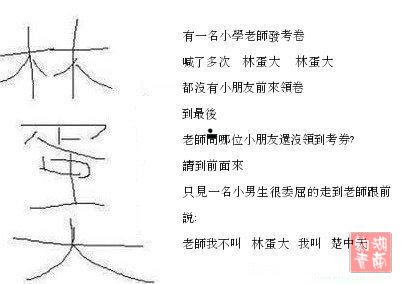 林
蛋
大
有一名小學老師發考卷
喊了多次 林蛋大 林蛋大
都沒有小朋友前來領卷
到最後
老師問哪位小朋友還沒領到考券?
請到前面來
只見一名小男生很委屈的走到老師跟前
說:
老師我不叫 林蛋大 我叫 楚中天